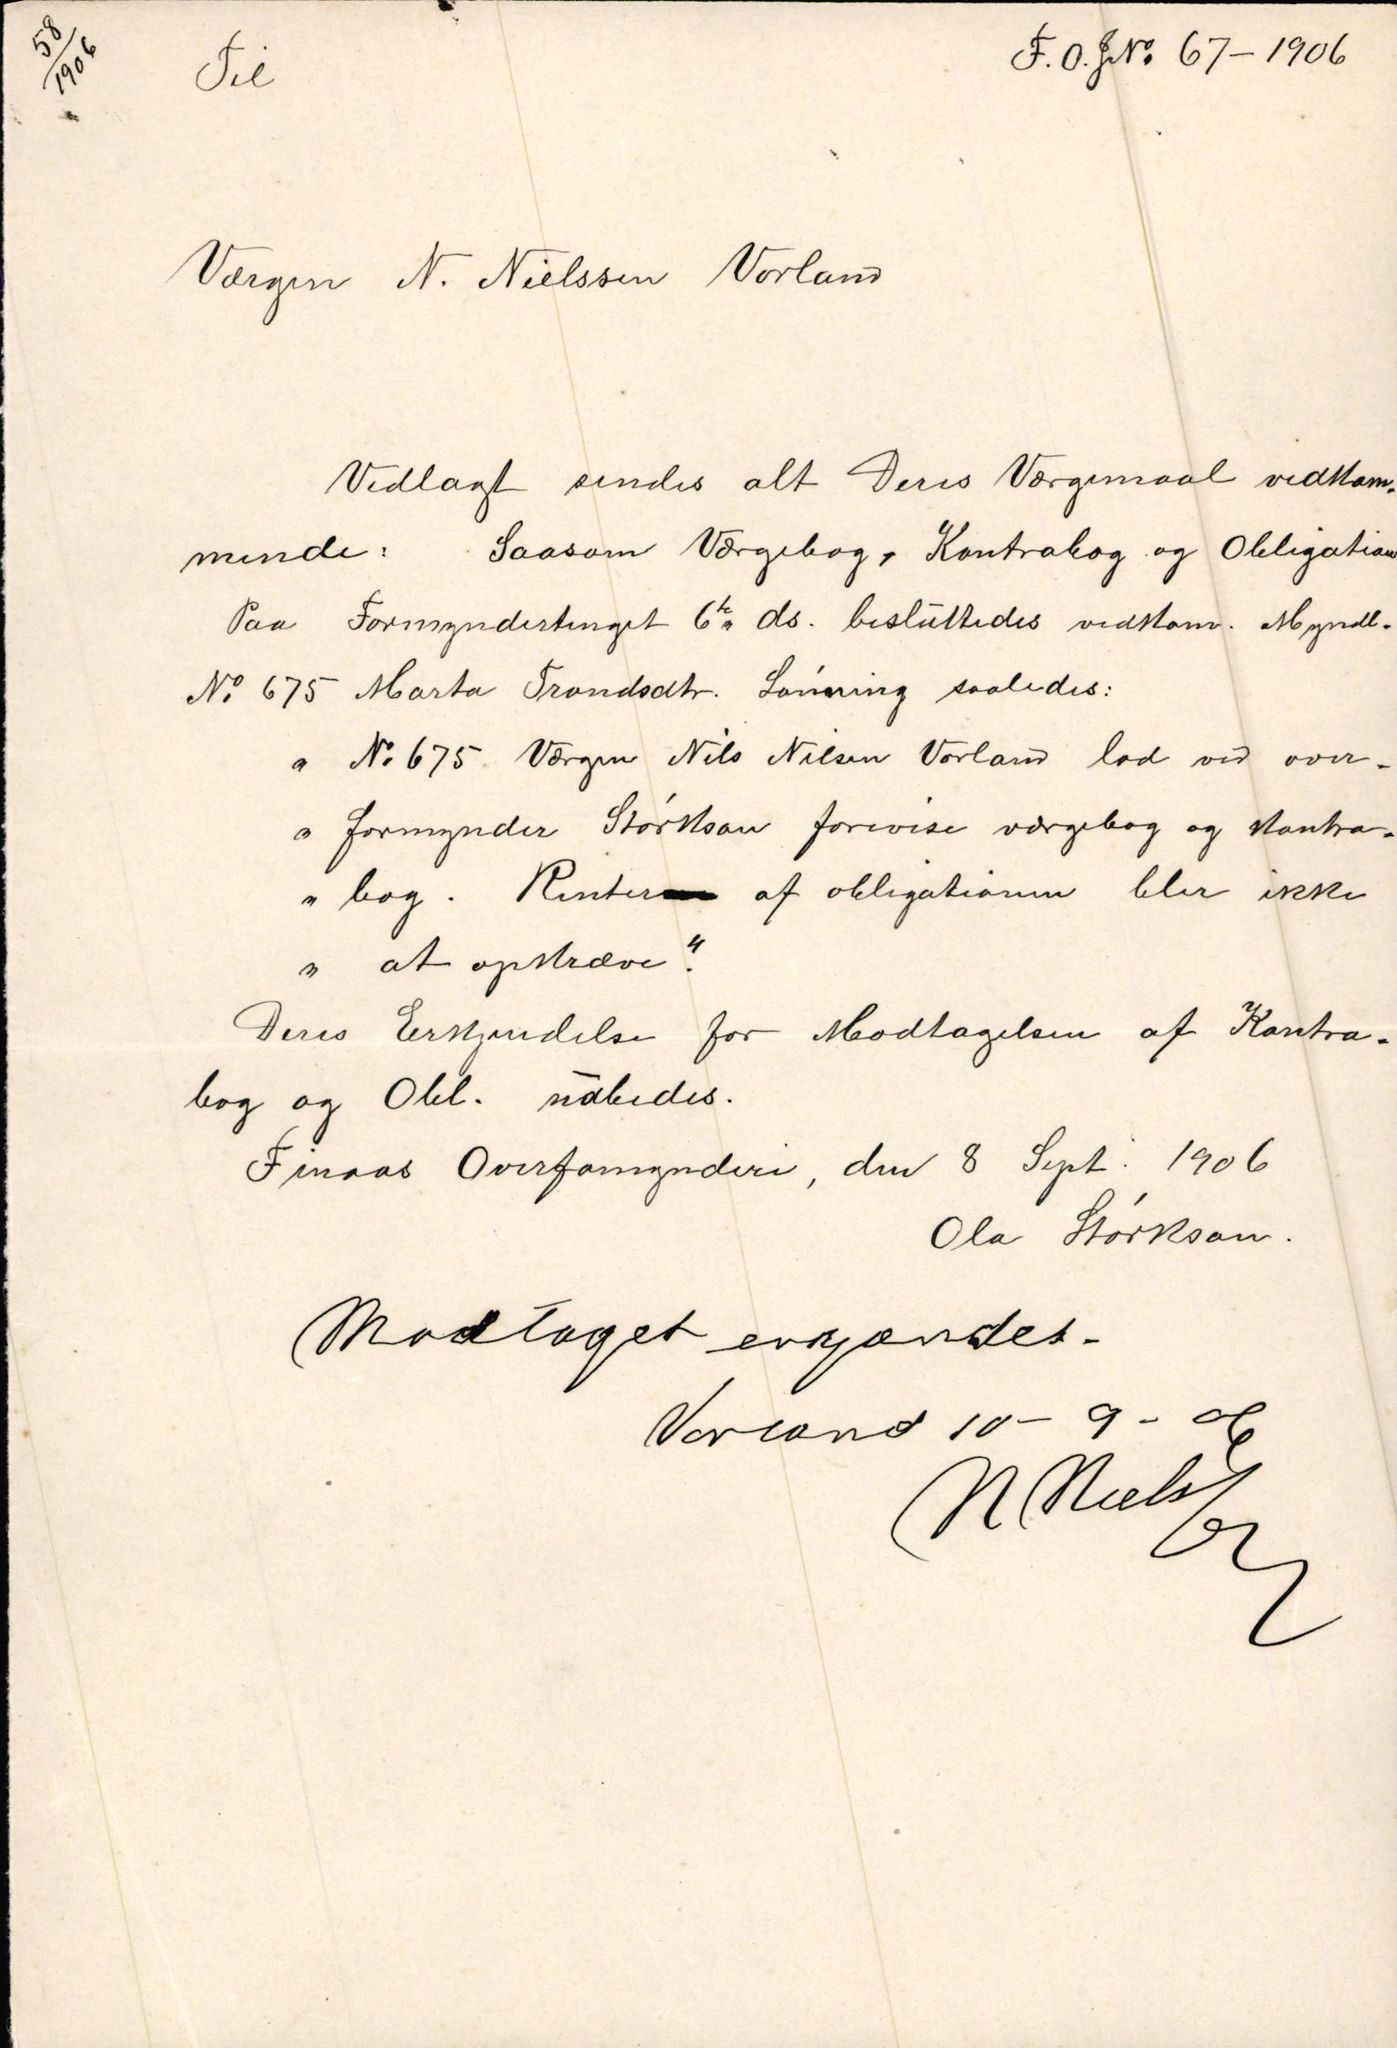 58/1906
Til
F. O. J No. 67 – 1906
Værgen N. Nielssen Vorland
Vedlagt sendes alt Deres Værgemaal vedkom-
mende: Saasom Værgebog, Kontrabog og Obligation
Paa Formyndertinget 6te ds. besluttedes vedkom. Myndl.
No. 675 Marta Trondsdtr. Lönning saaledes:
" No. 675 Værgen Nils Nilsen Vorland lod ved over-
" formynder Störkson forevise værgebog og kontra-
" bog. Renter af obligationen blev ikke
" at opkræve".
Deres Erkjendelse for Modtagelsen af Kontra-
bog og Obl. udbedes.
Finaas Overfomynderi, den 8 Sept. 1906
Ola Störkson.
Modtaget erkjændes-
Vorland 10 - 9 - 06
N Nielsen